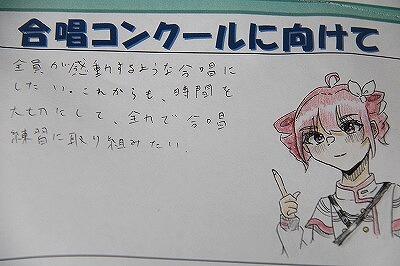 合唱コンクールに向けて
全員が感動するような合唱に
したい。これからも、時間を
大切にして、全力で合唱
練習に取り組みたい。